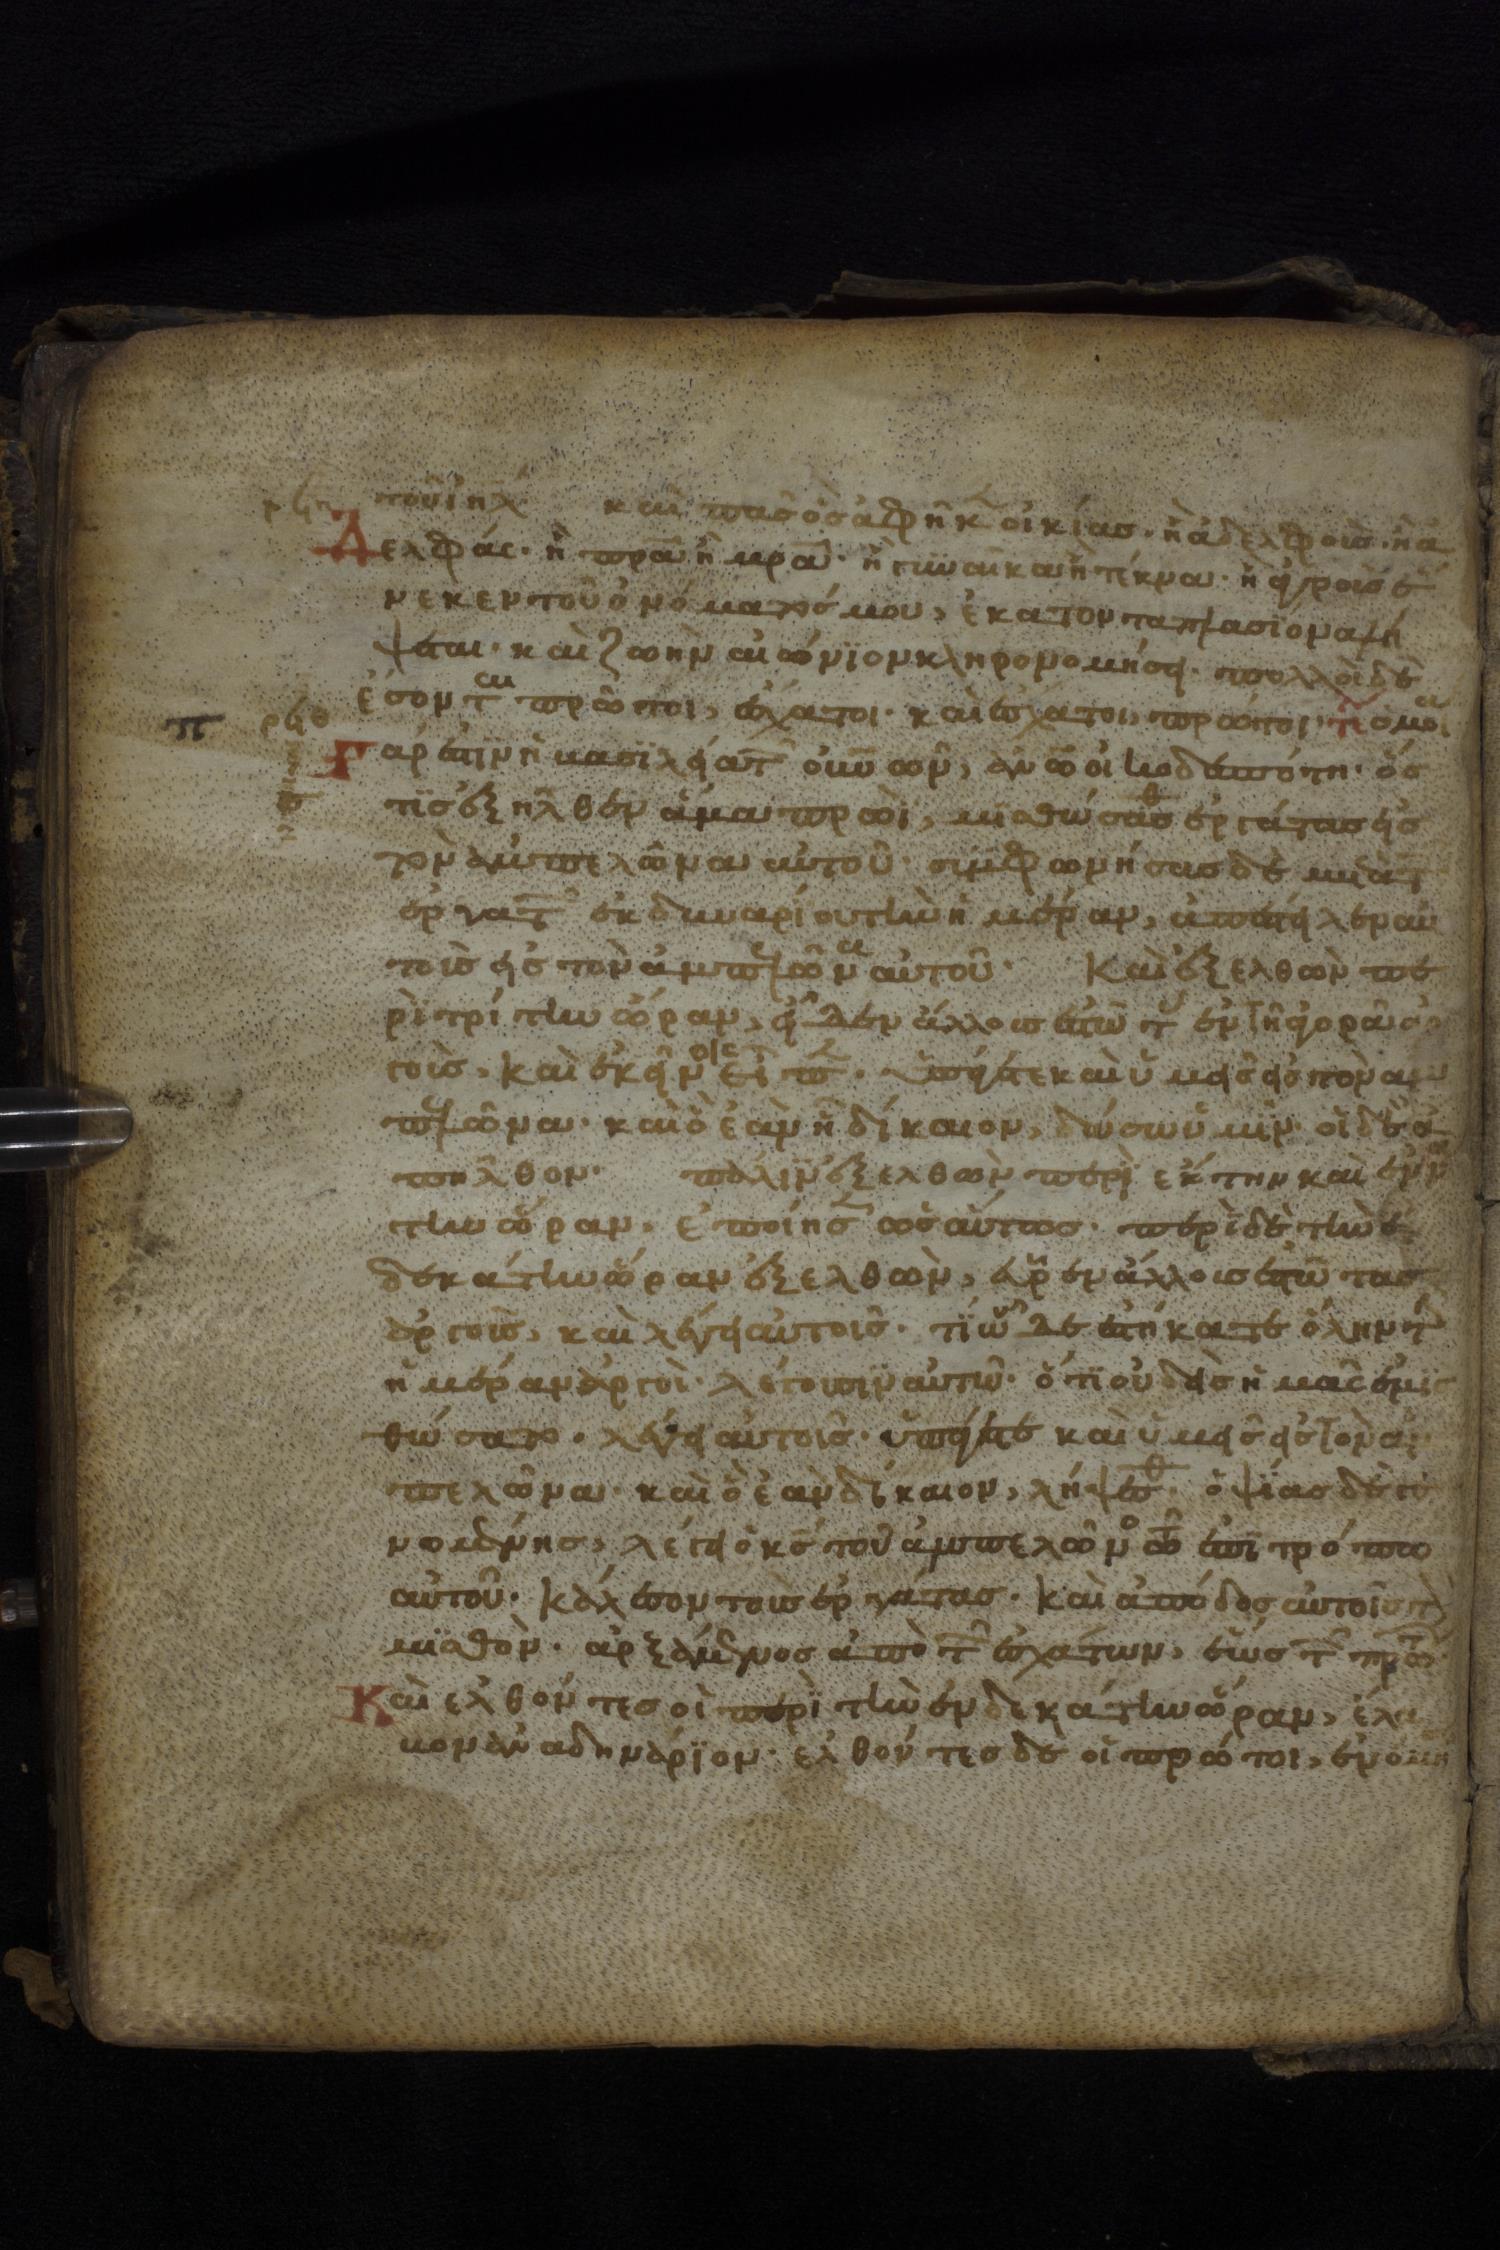 τοῦ ιηλ καὶ πᾶς ὃς ἀφῆκ οἰκίας· ἢ ἀδελφοὺς· ἢ ἀ
Δελφάς· ἢ πρα ἢ μρα· ἢ γυναῖκα ἢ τέκνα· ἢ ἀγροὺς ἕ
νεκεν τοῦ ὀνόματός μου, ἑκατονταπλασίονα λή
ψεται· καὶ ζωὴν αἰώνϊον κληρονομήσει· πολλοὶ δὲ
ἔσονται πρῶτοι, ἔσχατοι· καὶ ἔσχατοι, πρῶτοι· ὁμοί
Γάρ ἐστιν ἡ βασϊλεία τῶν οὐνων, ἀνω οἰκοδεσπότη· ὅσ
τϊς ἐξῆλθεν ἅμα πρωῒ, μισθώσασθ ἐργάτας εἰς
τὸν ἀμπελῶνα αὐτοῦ· συμφωνήσας δὲ μετὰ τῶν
ἐργατῶν ἐκ δηναρίου τὴν ἡμέραν, ἀπέστειλεν αὐ
τοὺς εἰς τὸν ἀμπελῶνα αὐτοῦ· Καὶ ἐξελθὼν πε
ρὶ τρίτην ὥραν, εἶδεν ἄλλους ἑστῶτας ἐν τῆ ἀγορᾶ ἀρ
γοὺς, καὶ ἐκείνοις εἶπεν· ὑπάγετε καὶ ὑμεῖς εἰς τὸν ἀμ
πελῶνα· καὶ ὃ ἐὰν ῆ δίκαιον, δώσω ὑμῖν· οἱ δὲ ἀ
πῆλθον· πάλϊν ἐξελθὼν περὶ ἕκτην καὶ ἐννά
την ὥραν, ἐποίησεν ὡσαύτως· περὶ δὲ τὴν ἑν
δεκάτην ὥραν ἐξελθὼν, εὗρεν ἄλλους ἑστῶτας
ἀργοὺς, καὶ λέγει αὐτοῖς· τί ὧδε ἑστήκατε ὅλην τὴν
ἡμέραν ἀργοὶ· λέγουσιν αὐτῶ· ὅτϊ οὐδεὶς ἡμᾶς ἐμισ
θώσατο· λέγει αὐτοῖς· ὑπάγετε καὶ ὑμεῖς εἰς τὸν ἀμ
πελῶνα· καὶ ὃ ἐὰν δίκαιον, λήψεσθ· ὀψίας δὲ γε
νομένης, λέγει ὁ κς τοῦ ἀμπελῶνος τῶ ἐπιτρόπω
αὐτοῦ· κάλεσον τοὺς ἐργάτας· καὶ ἀπόδος αὐτοῖς τὸν
μϊσθὸν· ἀρξάμενος ἀπὸ τῶν ἐσχάτων, ἕως τῶν πρώτ
Καὶ ἐλθόντες οἱ περὶ τὴν ἑνδεκάτην ὥραν, ἔλα
βον ἀνὰ δηνάρϊον· ἐλθόντες δὲ οἱ πρῶτοι, ἐνόμι